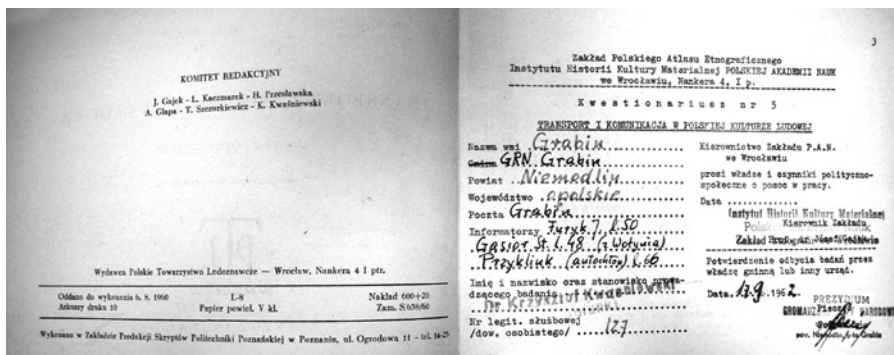 KOMITET REDAKCYJNY
J. Gajek - L. Kaczmarek - H. Przesławska
A. Glapa - T. Szczurkiewicz - K. Kwaśniewski
Wydawca Polskie Towarzystwo Ludoznawcze — Wrocław, Nankera 4 I ptr.
Oddano do wykonania 6. 8. 1960 L-8 Nakład 600+20
Arkuszy druku 10 Papier powiel. V kl. Zam. S/038/60
Wykonano w Zakładzie Produkcji Skryptów Politechniki Poznańskiej w Poznaniu, ul. Ogrodowa 11 - tel.
3
Zakład Polskiego Atlasu Etnograficznego
Instytutu Historii Kultury Materialnej POLSKIEJ AKADEMII NAUK
we Wrocławiu, Nankera 4, I p.
Kwestionariusz nr 5
TRANSPORT I KOMUNIKACJA W POLSKIEJ KULTURZE LUDOWEJ
Nazwa wsi Grabin
Gmina GRN Grabin
Powiat Niemodlin
Województwo opolskie
Poczta Grabin
Informatorzy Furyk J. l. 50
Gąsior St. l. 48 (z Wołynia)
Przyklink (autochton) l. 66
Imię i nazwisko oraz stanowisko prowadzącego badania
Dr Krzysztof Kwaśniewski
Nr legit. służbowej
/dow. osobistego/ 127
Kierownictwo Zakładu P.A.N.
we Wrocławiu
prosi władze i czynniki polityczno-
społeczne o pomoc w pracy.
Data
Instytut Historii Kultury Materialnej
Kierownik Zakładu
Potwierdzenie odbycia badań przez
władzę gminną lub inny urząd.
Data 17.9.1962.
PREZYDIUM
Pieczęć